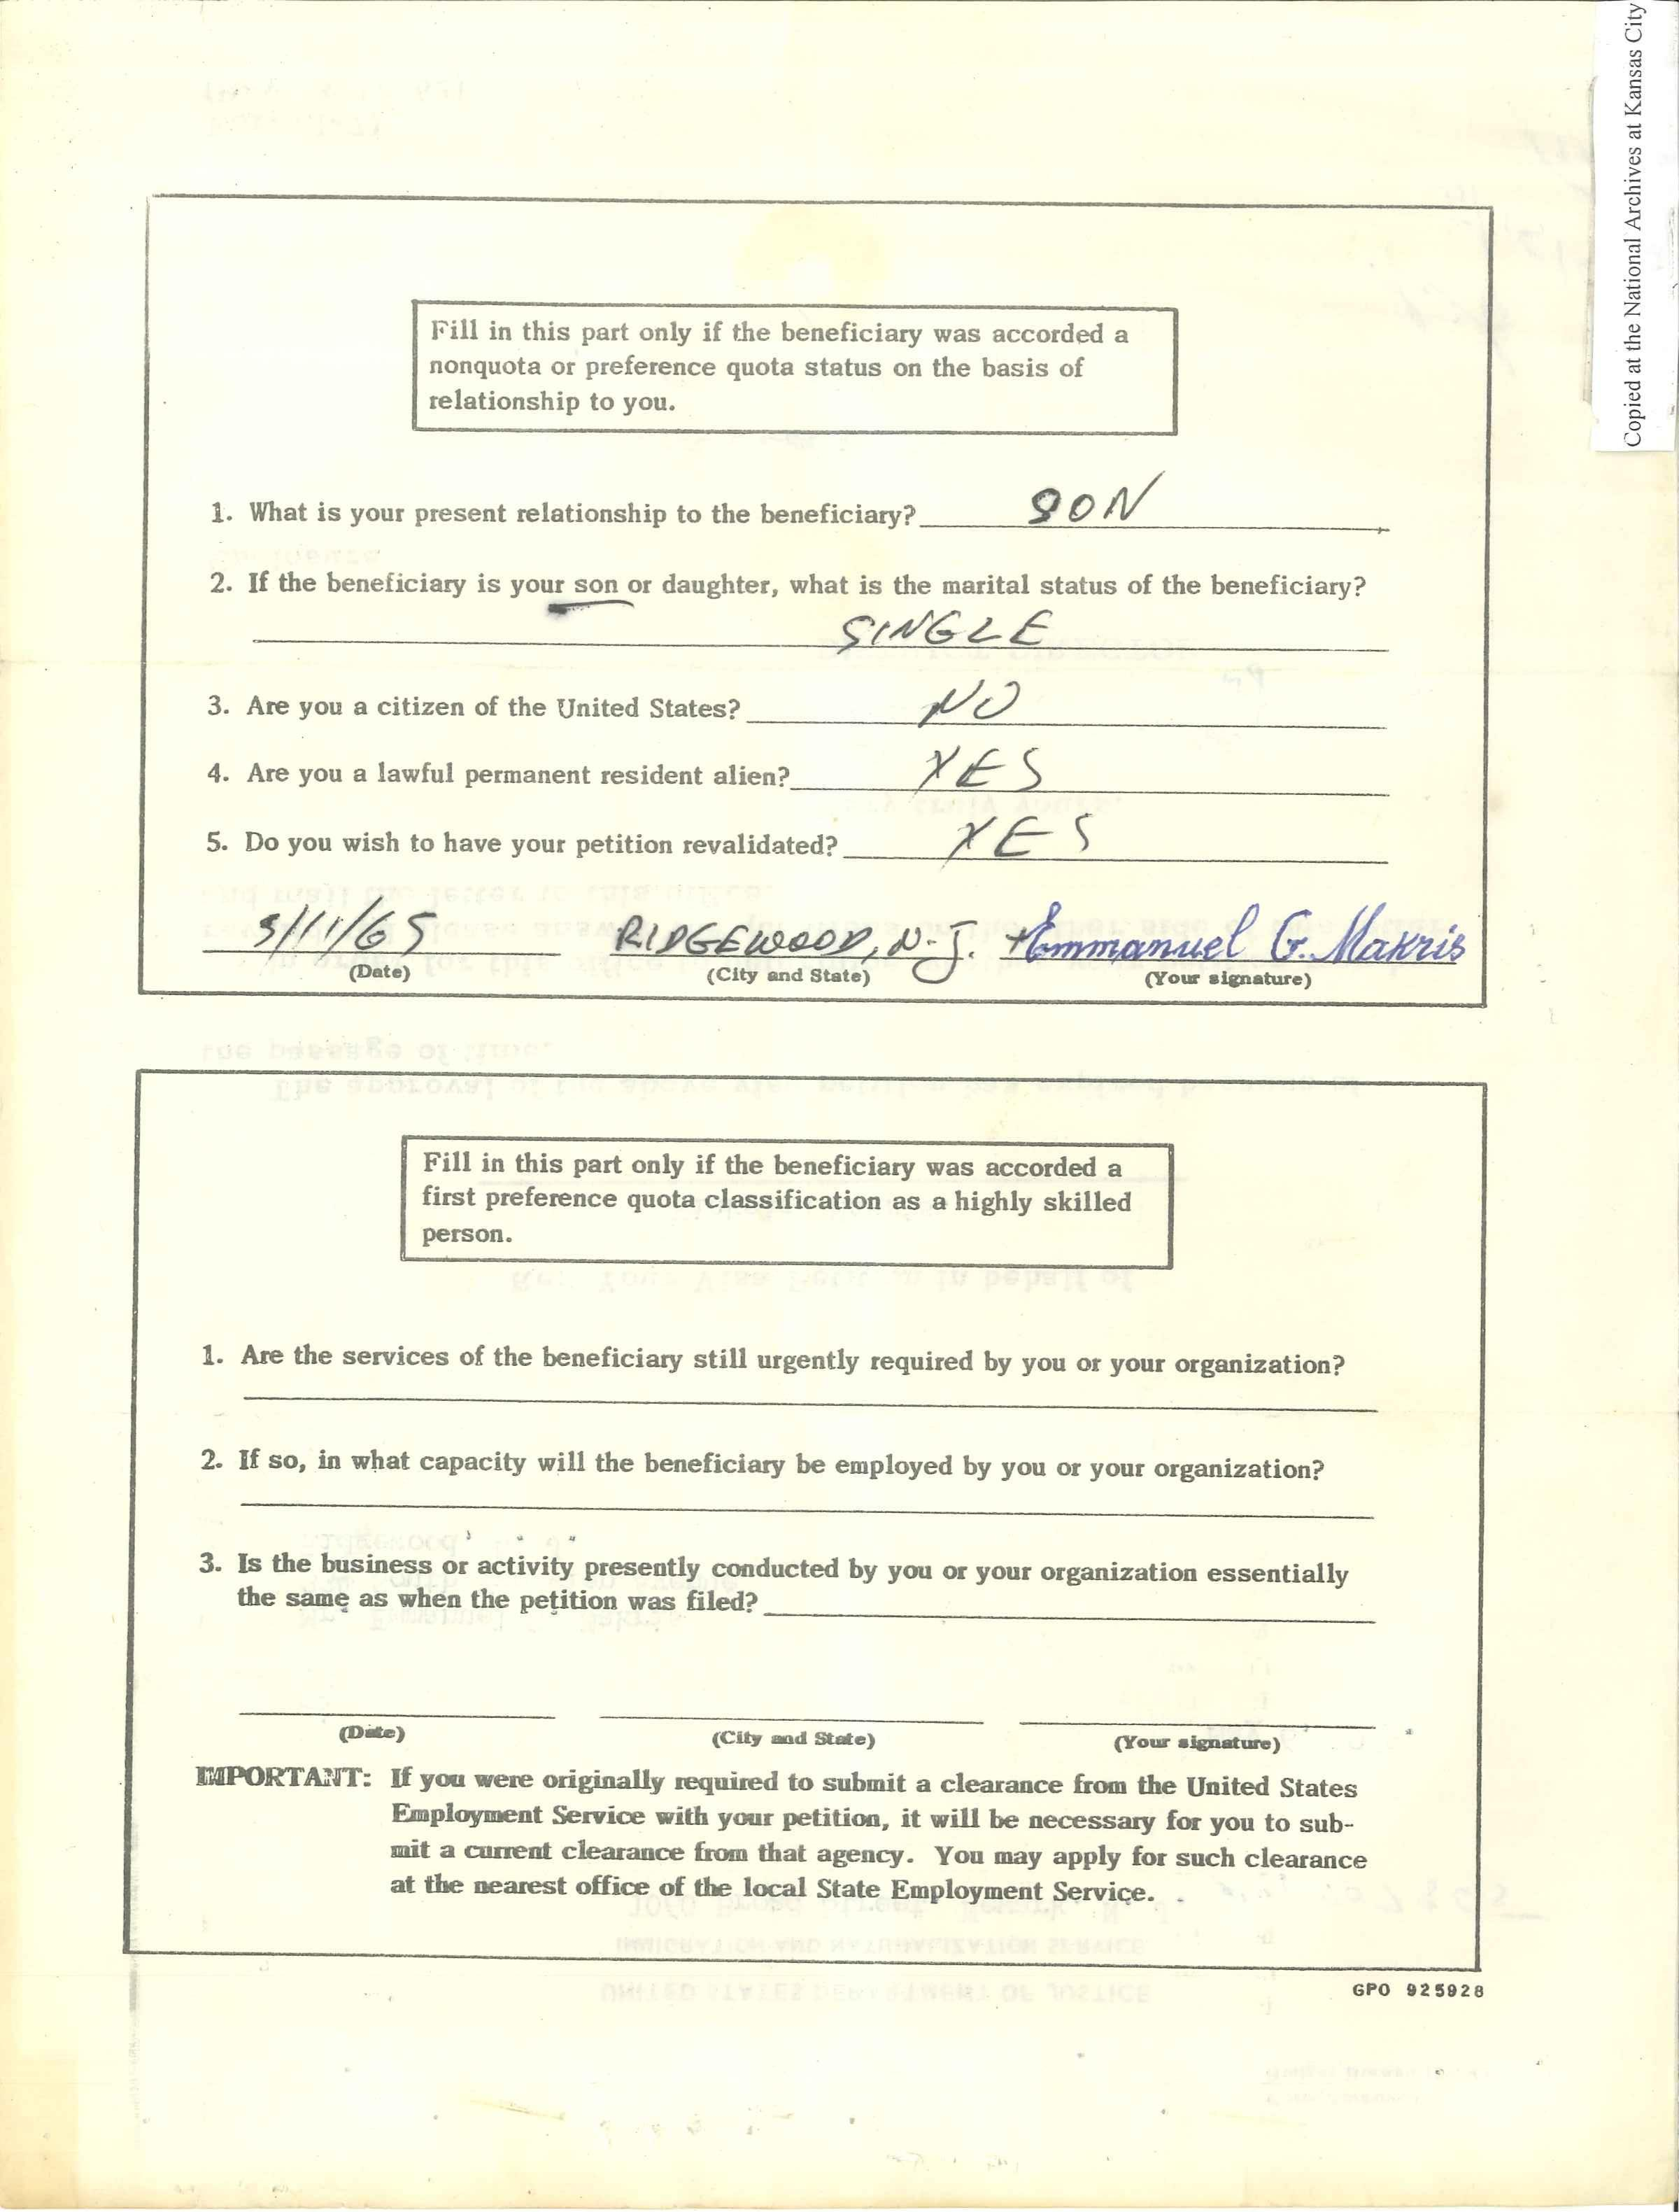 Copied at the National Archives at Kansas City
Fill in this part only if the beneficiary was accorded a
nonquota or preference quota status on the basis of
relationship to you.
1. What is your present relationship to the beneficiary? SON
2. If the beneficiary is your son or daughter, what is the marital status of the beneficiary?
SINGLE
3. Are you a citizen of the United States? NO
4. Are you a lawful permanent resident alien? YES
5. Do you wish to have your petition revalidated? YES
3/11/65 RIDGEWOOD, N.J. Emmanuel G. Makris
(Date) (City and State) (Your signature)
Fill in this part only if the beneficiary was accorded a
first preference quota classification as a highly skilled
person.
1. Are the services of the beneficiary still urgently required by you or your organization?
2. If so, in what capacity will the beneficiary be employed by you or your organization?
3. Is the business or activity presently conducted by you or your organization essentially
the same as when the petition was filed?
(Date) (City and State) (Your signature)
IMPORTANT: If you were originally required to submit a clearance from the United States
Employment Service with your petition, it will be necessary for you to sub-
mit a current clearance from that agency. You may apply for such clearance
at the nearest office of the local State Employment Service.
GPO 925928